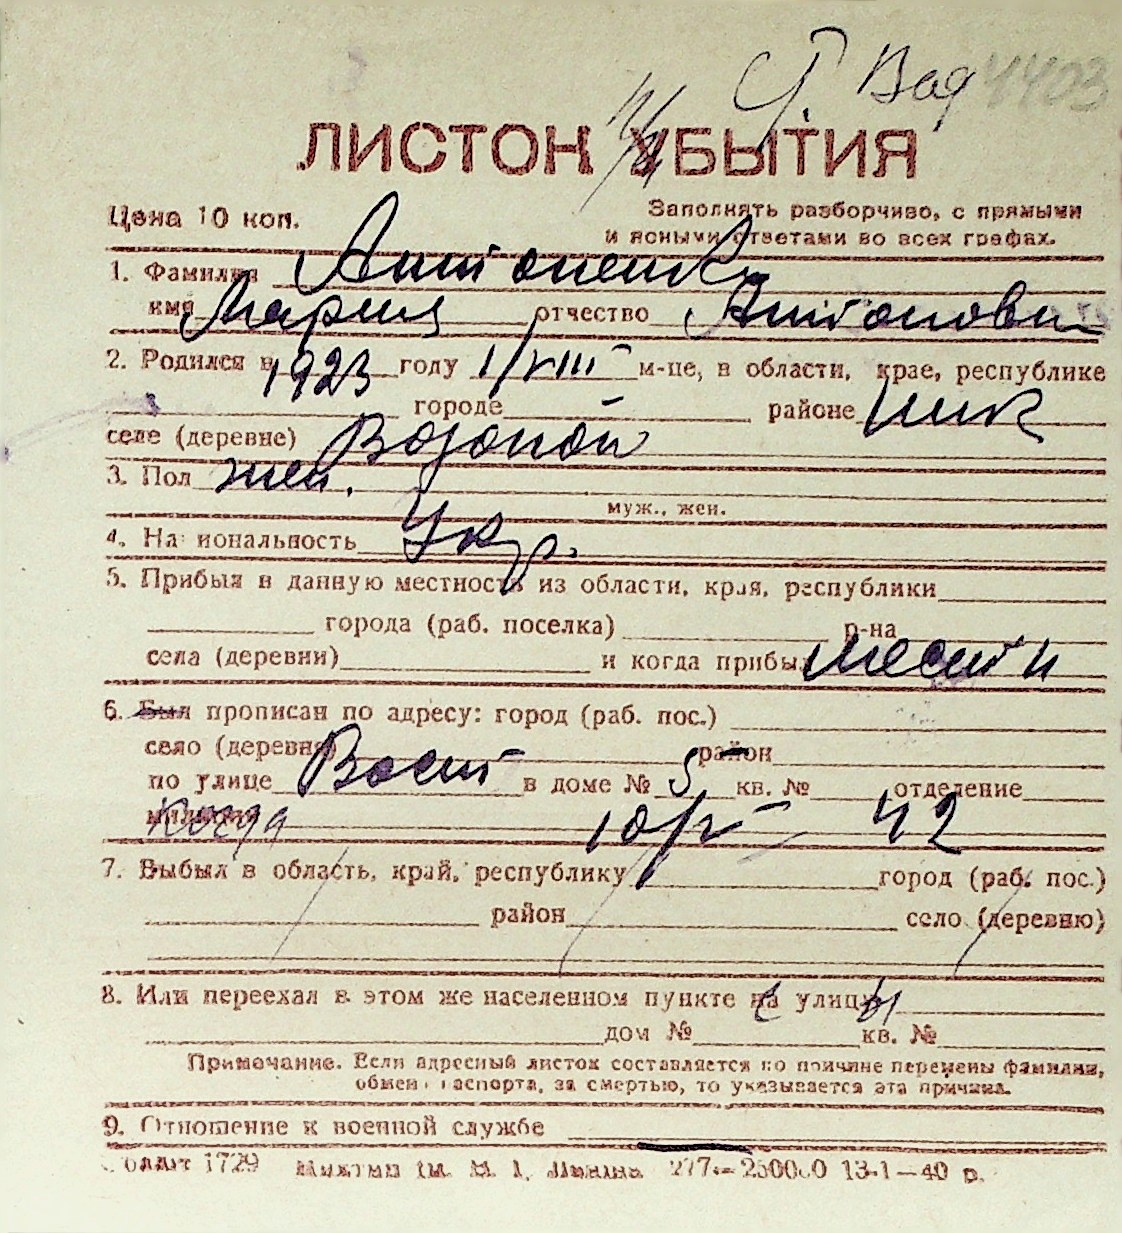 Вад 4403
ЛИСТОК УБЫТИЯ
Цена 10 коп.
Заполнять разборчиво, с прямыми
и ясными ответами во всех графах.
1. Фамилия Антоненко
имя Мария отчество Антоновн
2. Родился в 1923 году 1/VIII м-це, в области, крае, республике
городе районе
селе (деревне)
3. Пол жен.
муж., жен.
4. На иональность Укр.
5. Прибыл в данную местность из области, края, республики
города (раб. поселка) р-на
села (деревни) и когда прибыл
6. Был прописан по адресу: город (раб. пос.)
село (деревня) район
по улице Восст в доме № 5 кв. № отделение
милиции когда 10/V 42
7. Выбыл в область, край, республику город (раб. пос.)
район село (деревню)
8. Или переехал в этом же населенном пункте с улицы
дом № кв. №
Примечание. Если адресный листок составляется по причине перемены фамилии,
обмен паспорта, за смертью, то указывается эта причина.
9. Отношение к военной службе
1729 277—250000 13-1—40 р.